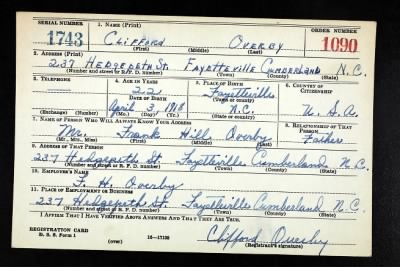 SERIAL NUMBER 1. NAME (Print) ORDER NUMBER
1743 CLIFFORD OVERBY 1090
(First) (Middle) (Last)
2. ADDRESS (Print)
237 HEDGEPETH St. FAYETTEVILLE CUMBERLAND N.C.
(Number and street or R. F. D. number) (Town) (County) (State)
3. TELEPHONE 4. AGE IN YEARS 5. PLACE OF BIRTH 6. COUNTRY OF CITIZENSHIP
22 Fayetteville
DATE OF BIRTH (Town or county)
April 3 1918 N.C. U.S.A.
(Exchange) (Number) (Mo.) (Day) (Yr.) (State or country)
7. NAME OF PERSON WHO WILL ALWAYS KNOW YOUR ADDRESS 8. RELATIONSHIP OF THAT PERSON
Mr. Frank Hill Overby Father
(Mr., Mrs., Miss) (First) (Middle) (Last)
9. ADDRESS OF THAT PERSON
237 Hedgepeth St. Fayetteville Cumberland N.C.
(Number and street or R. F. D. number) (Town) (County) (State)
10. EMPLOYER'S NAME
F. H. Overby
11. PLACE OF EMPLOYMENT OR BUSINESS
237 Hedgepeth St. Fayetteville Cumberland N.C.
(Number and street or R. F. D. number) (Town) (County) (State)
I AFFIRM THAT I HAVE VERIFIED ABOVE ANSWERS AND THAT THEY ARE TRUE.
REGISTRATION CARD
D. S. S. Form 1 (over) 16—17105 Clifford Overby
(Registrant's signature)